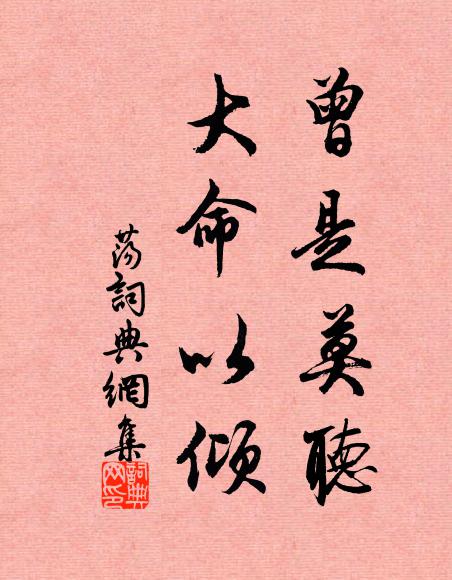 曾是莫聽
大命以傾
蕩詞典網集
詞典网印